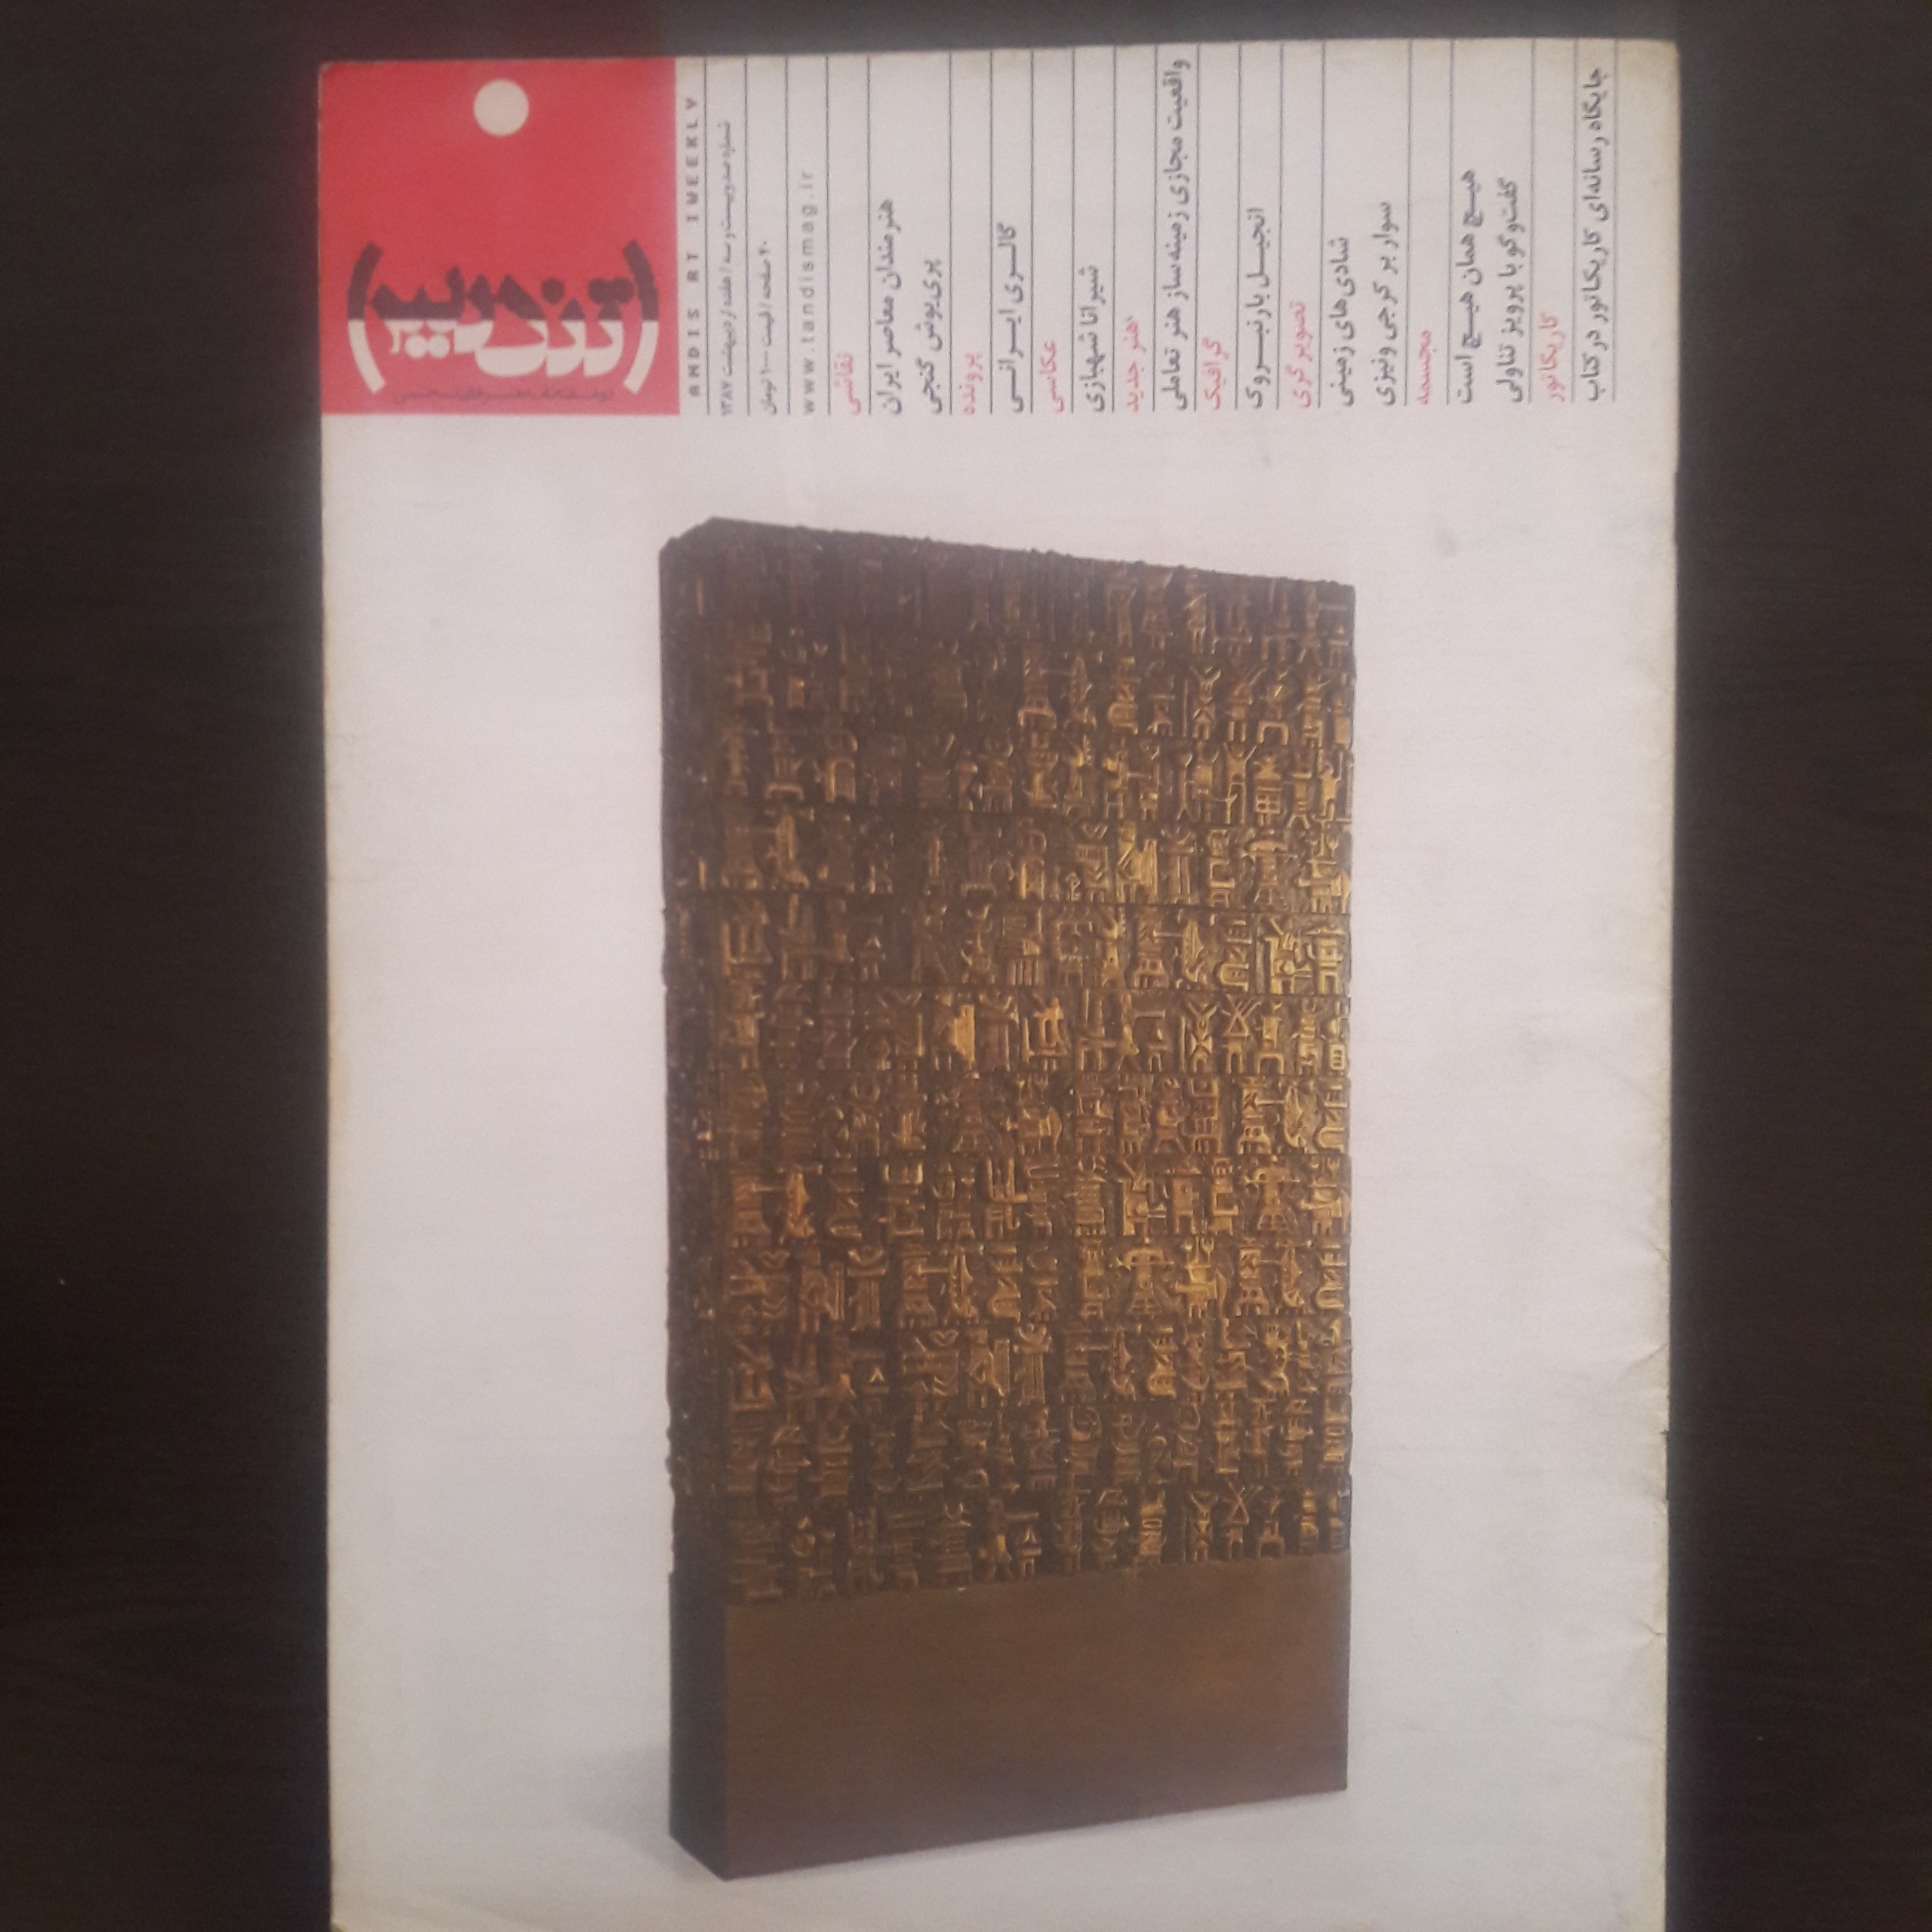 تندیس
دوهفته‌نامه هنرهای تجسمی
ANDIS ART IWEEKLY
شماره صدوبیست‌وسه / هفده اردیبهشت ۱۳۸۷
۲۰ صفحه / قیمت ۱۰۰۰ تومان
www.tandismag.ir
نقاشی
هنرمندان معاصر ایران
پری‌یوش گنجی
پرونده
گالری ایرانی
عکاسی
شیرانا شهبازی
هنر جدید
واقعیت مجازی زمینه‌ساز هنر تعاملی
گرافیک
انجیل بارنبروک
تصویرگری
شادی‌های زمینی
سوار بر کرجی ونیزی
مجسمه
هیچ همان هیچ است
گفت‌وگو با پرویز تناولی
کاریکاتور
جایگاه رسانه‌ای کاریکاتور در کتاب